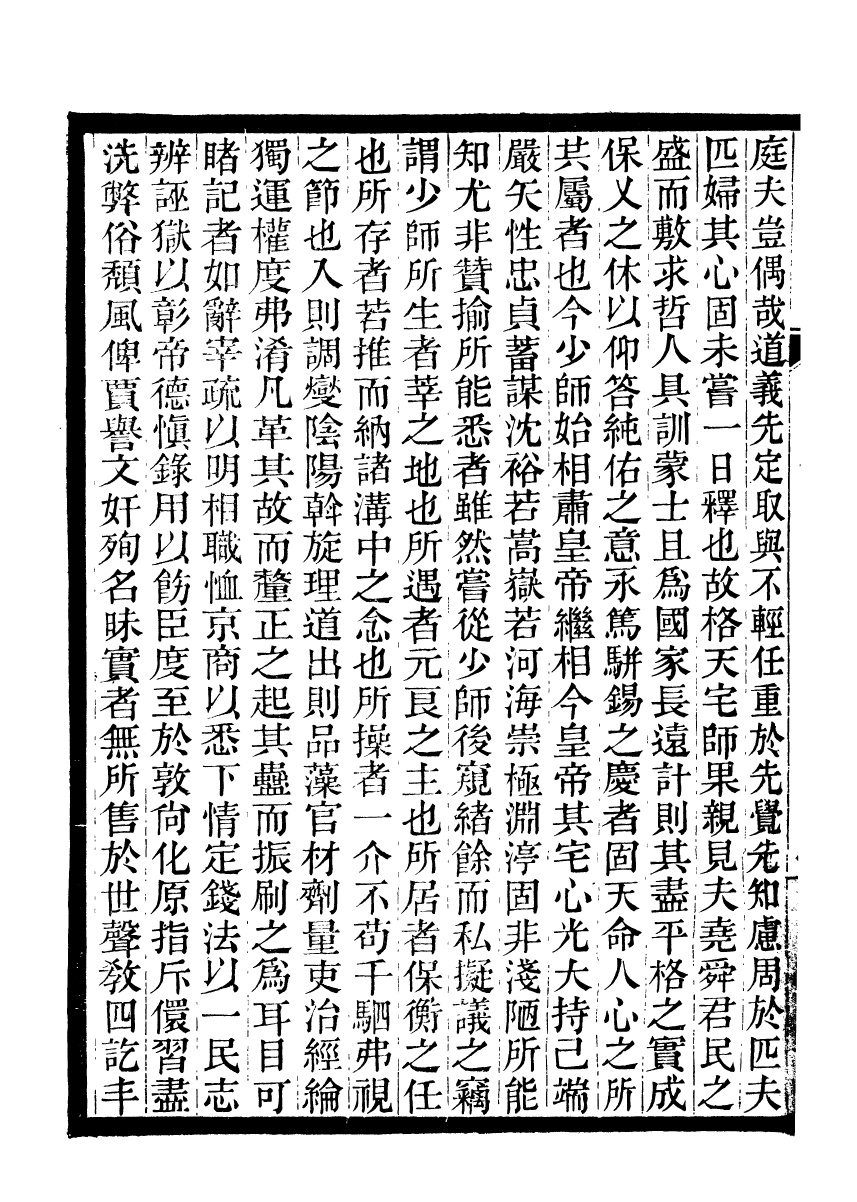 庭夫豈偶哉道義先定取與不輕任重於先覺先知慮周於匹夫
匹婦其心固未嘗一日釋也故格天宅師果親見夫堯舜君民之
盛而敷求哲人具訓蒙士且爲國家長遠計則其盡平格之實成
保乂之休以仰答純佑之意永篤駢錫之慶者固天命人心之所
共屬者也今少師始相肅皇帝繼相今皇帝其宅心光大持己端
嚴矢性忠貞蓄謀沈裕若嵩嶽若河海崇極淵渟固非淺陋所能
知尤非贊揄所能悉者雖然嘗從少師後窺緒餘而私擬議之竊
謂少師所生者莘之地也所遇者元良之主也所居者保衡之任
也所存者若推而納諸溝中之念也所操者一介不苟千駟弗視
之節也入則調燮陰陽斡旋理道出則品藻官材劑量吏治經綸
獨運權度弗淆凡革其故而釐正之起其蠱而振刷之爲耳目可
睹記者如辭宰疏以明相職恤京商以悉下情定錢法以一民志
辨誣獄以彰帝德愼錄用以飭臣度至於敦尙化原指斥儇習盡
洗弊俗頹風俾賈譽文奸殉名昧實者無所售於世聲敎四訖丰